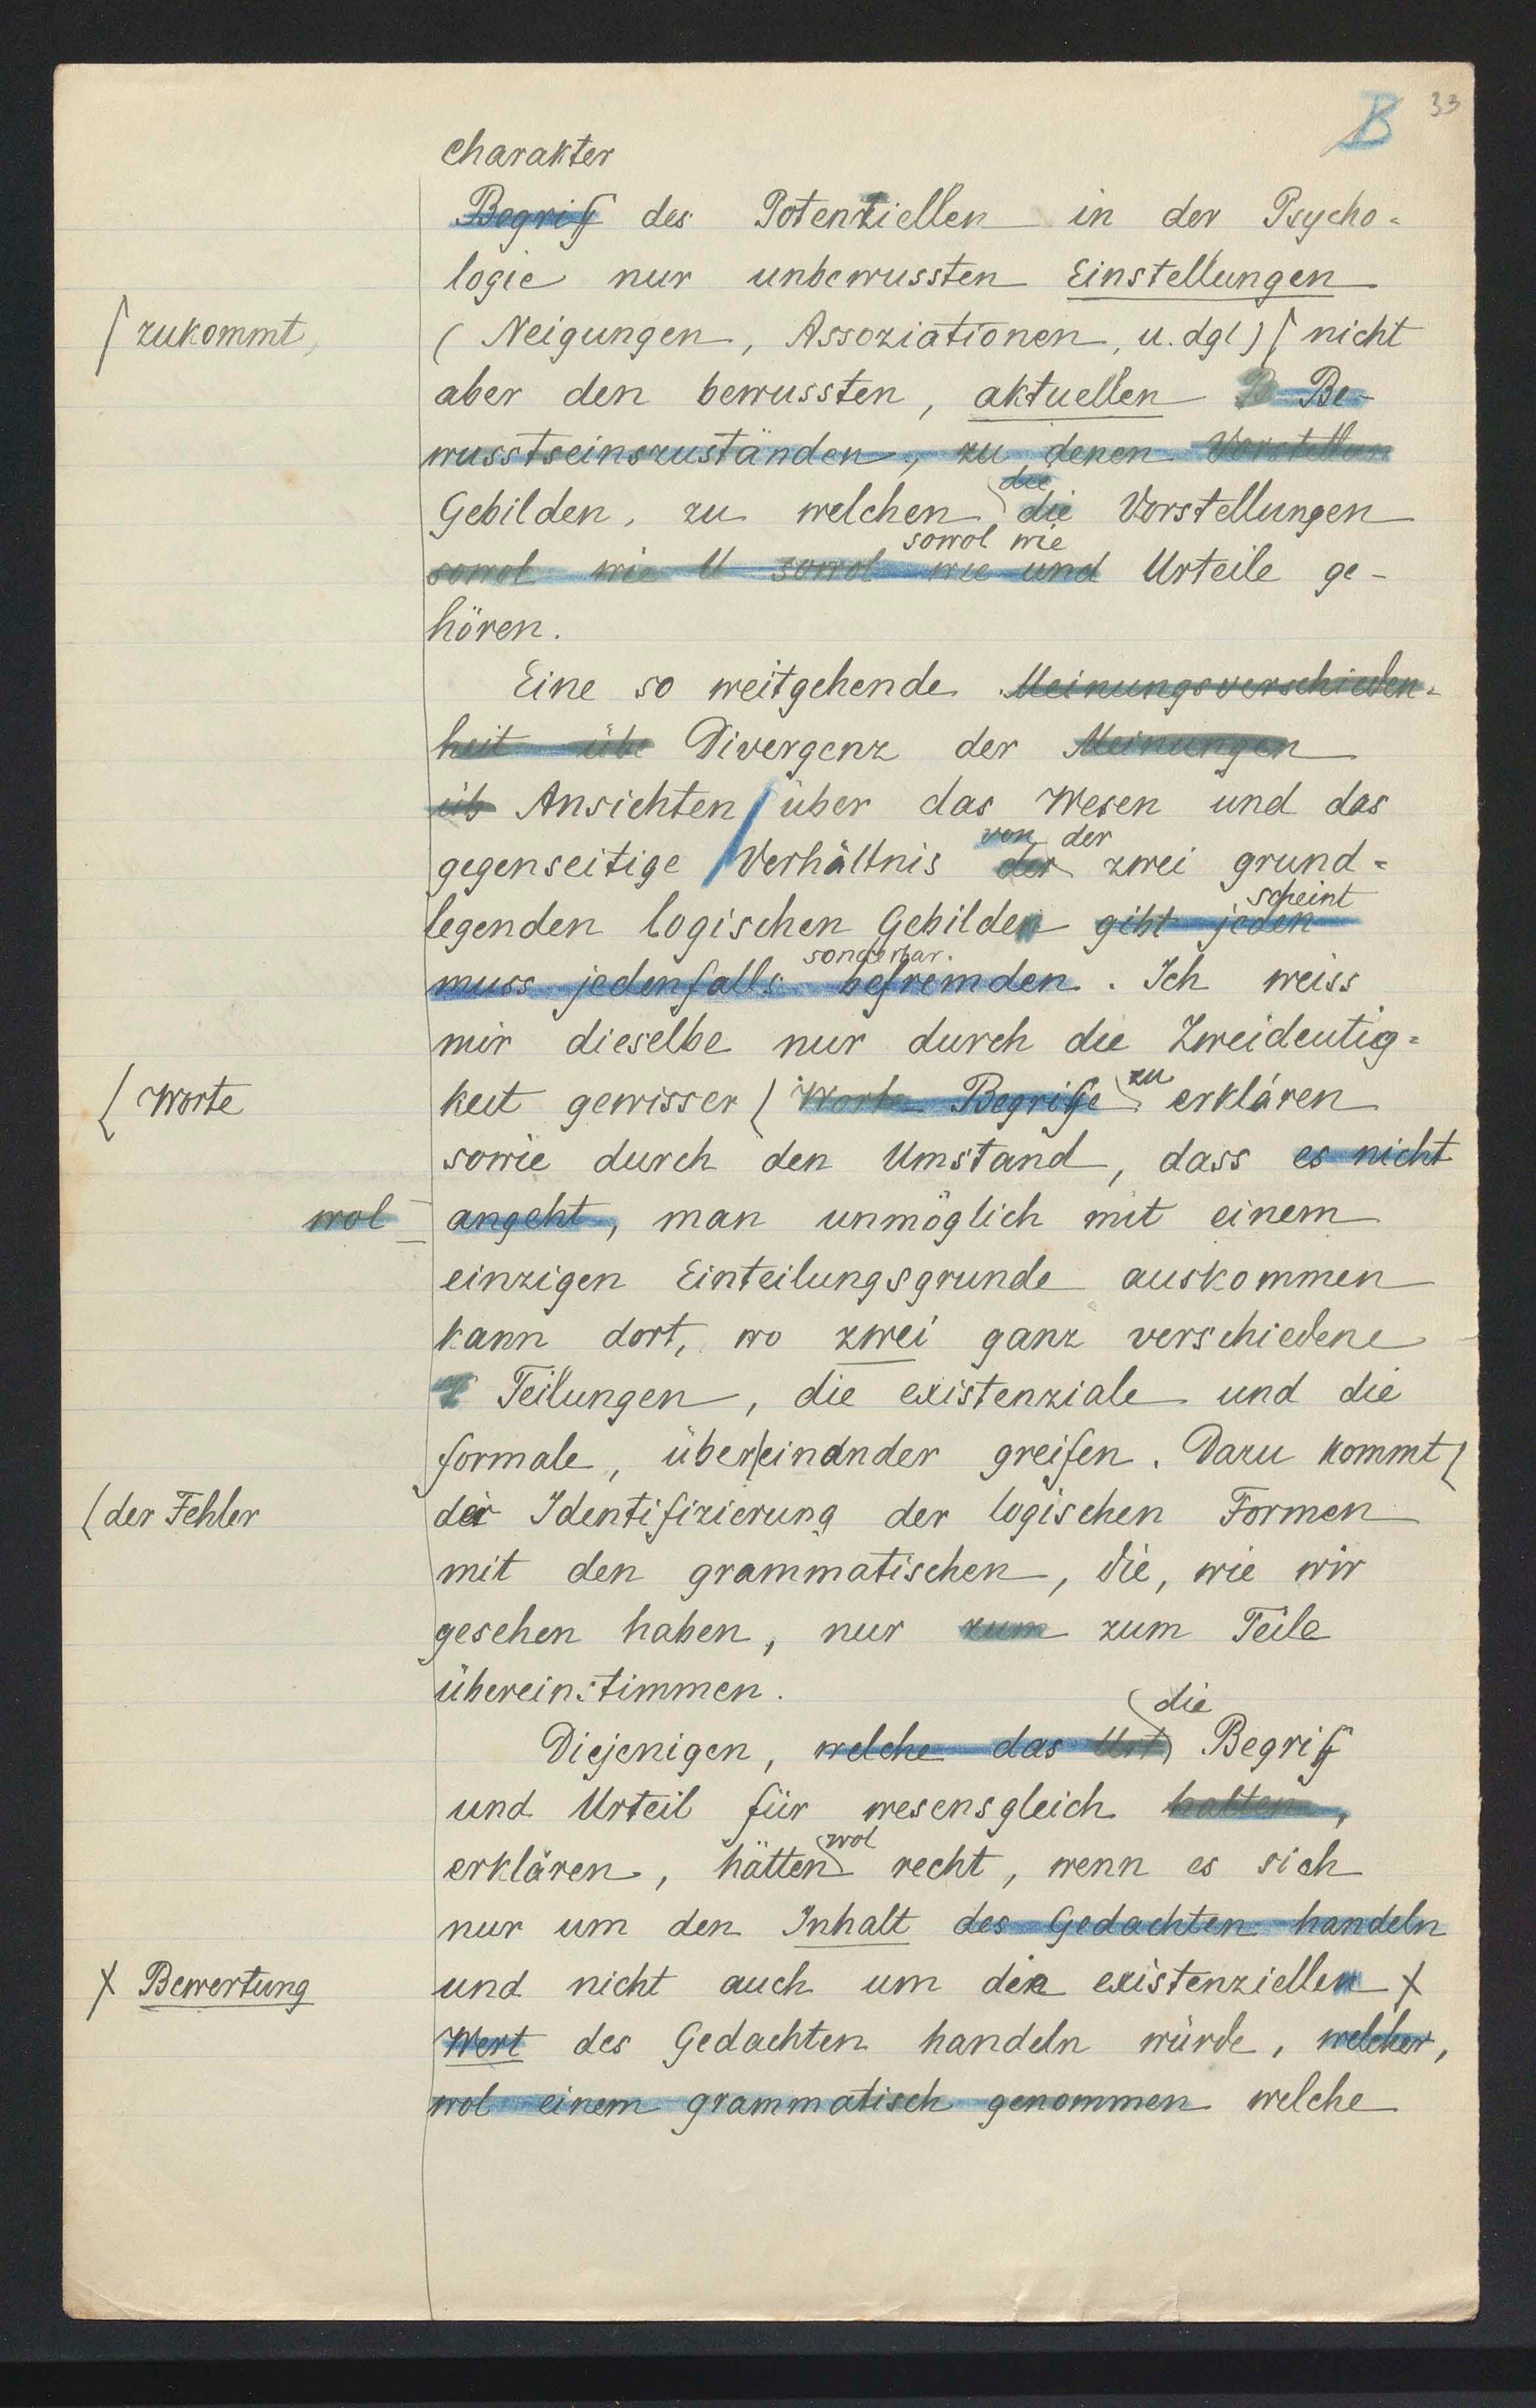 B 33
charakter
Begriff des Potenziellen in der Psycho-
logie nur unbewussten Einstellungen
zukommt,
( Neigungen, Assoziationen, u. dgl ) nicht
aber den bewussten, aktuellen B Be-
wusstseinszuständen, zu denen Vorstellun
die
Gebilden, zu welchen die Vorstellungen
sowol wie
sowol wie U sowol wie und Urteile ge-
hören.
Eine so weitgehende Meinungsverschieden-
heit übe Divergenz der Meinungen
üb Ansichten über das Wesen und das
von der
gegenseitige Verhältnis der zwei grund-
scheint
legenden logischen Gebilden gibt jeden
sonderbar.
muss jedenfalls befremden. Ich weiss
mir dieselbe nur durch die Zweideutig-
zu
( Worte
keit gewisser ( Worte Begriffe erklären
sowie durch den Umstand, dass es nicht
wol
angeht, man unmöglich mit einem
einzigen Einteilungsgrunde auskommen
kann dort, wo zwei ganz verschiedene
T Teilungen, die existenziale und die
formale, über|einander greifen. Dazu kommt (
( der Fehler
der Identifizierung der logischen Formen
mit den grammatischen, die, wie wir
gesehen haben, nur zum zum Teile
übereinstimmen.
die
Diejenigen, welche das Urt Begriff
und Urteil für wesensgleich halten,
wol
erklären, hätten recht, wenn es sich
nur um den Inhalt des Gedachten handeln
X Bewertung
und nicht auch um den existenziellen X
Wert des Gedachten handeln würde, welcher,
wol einem grammatisch genommen welche